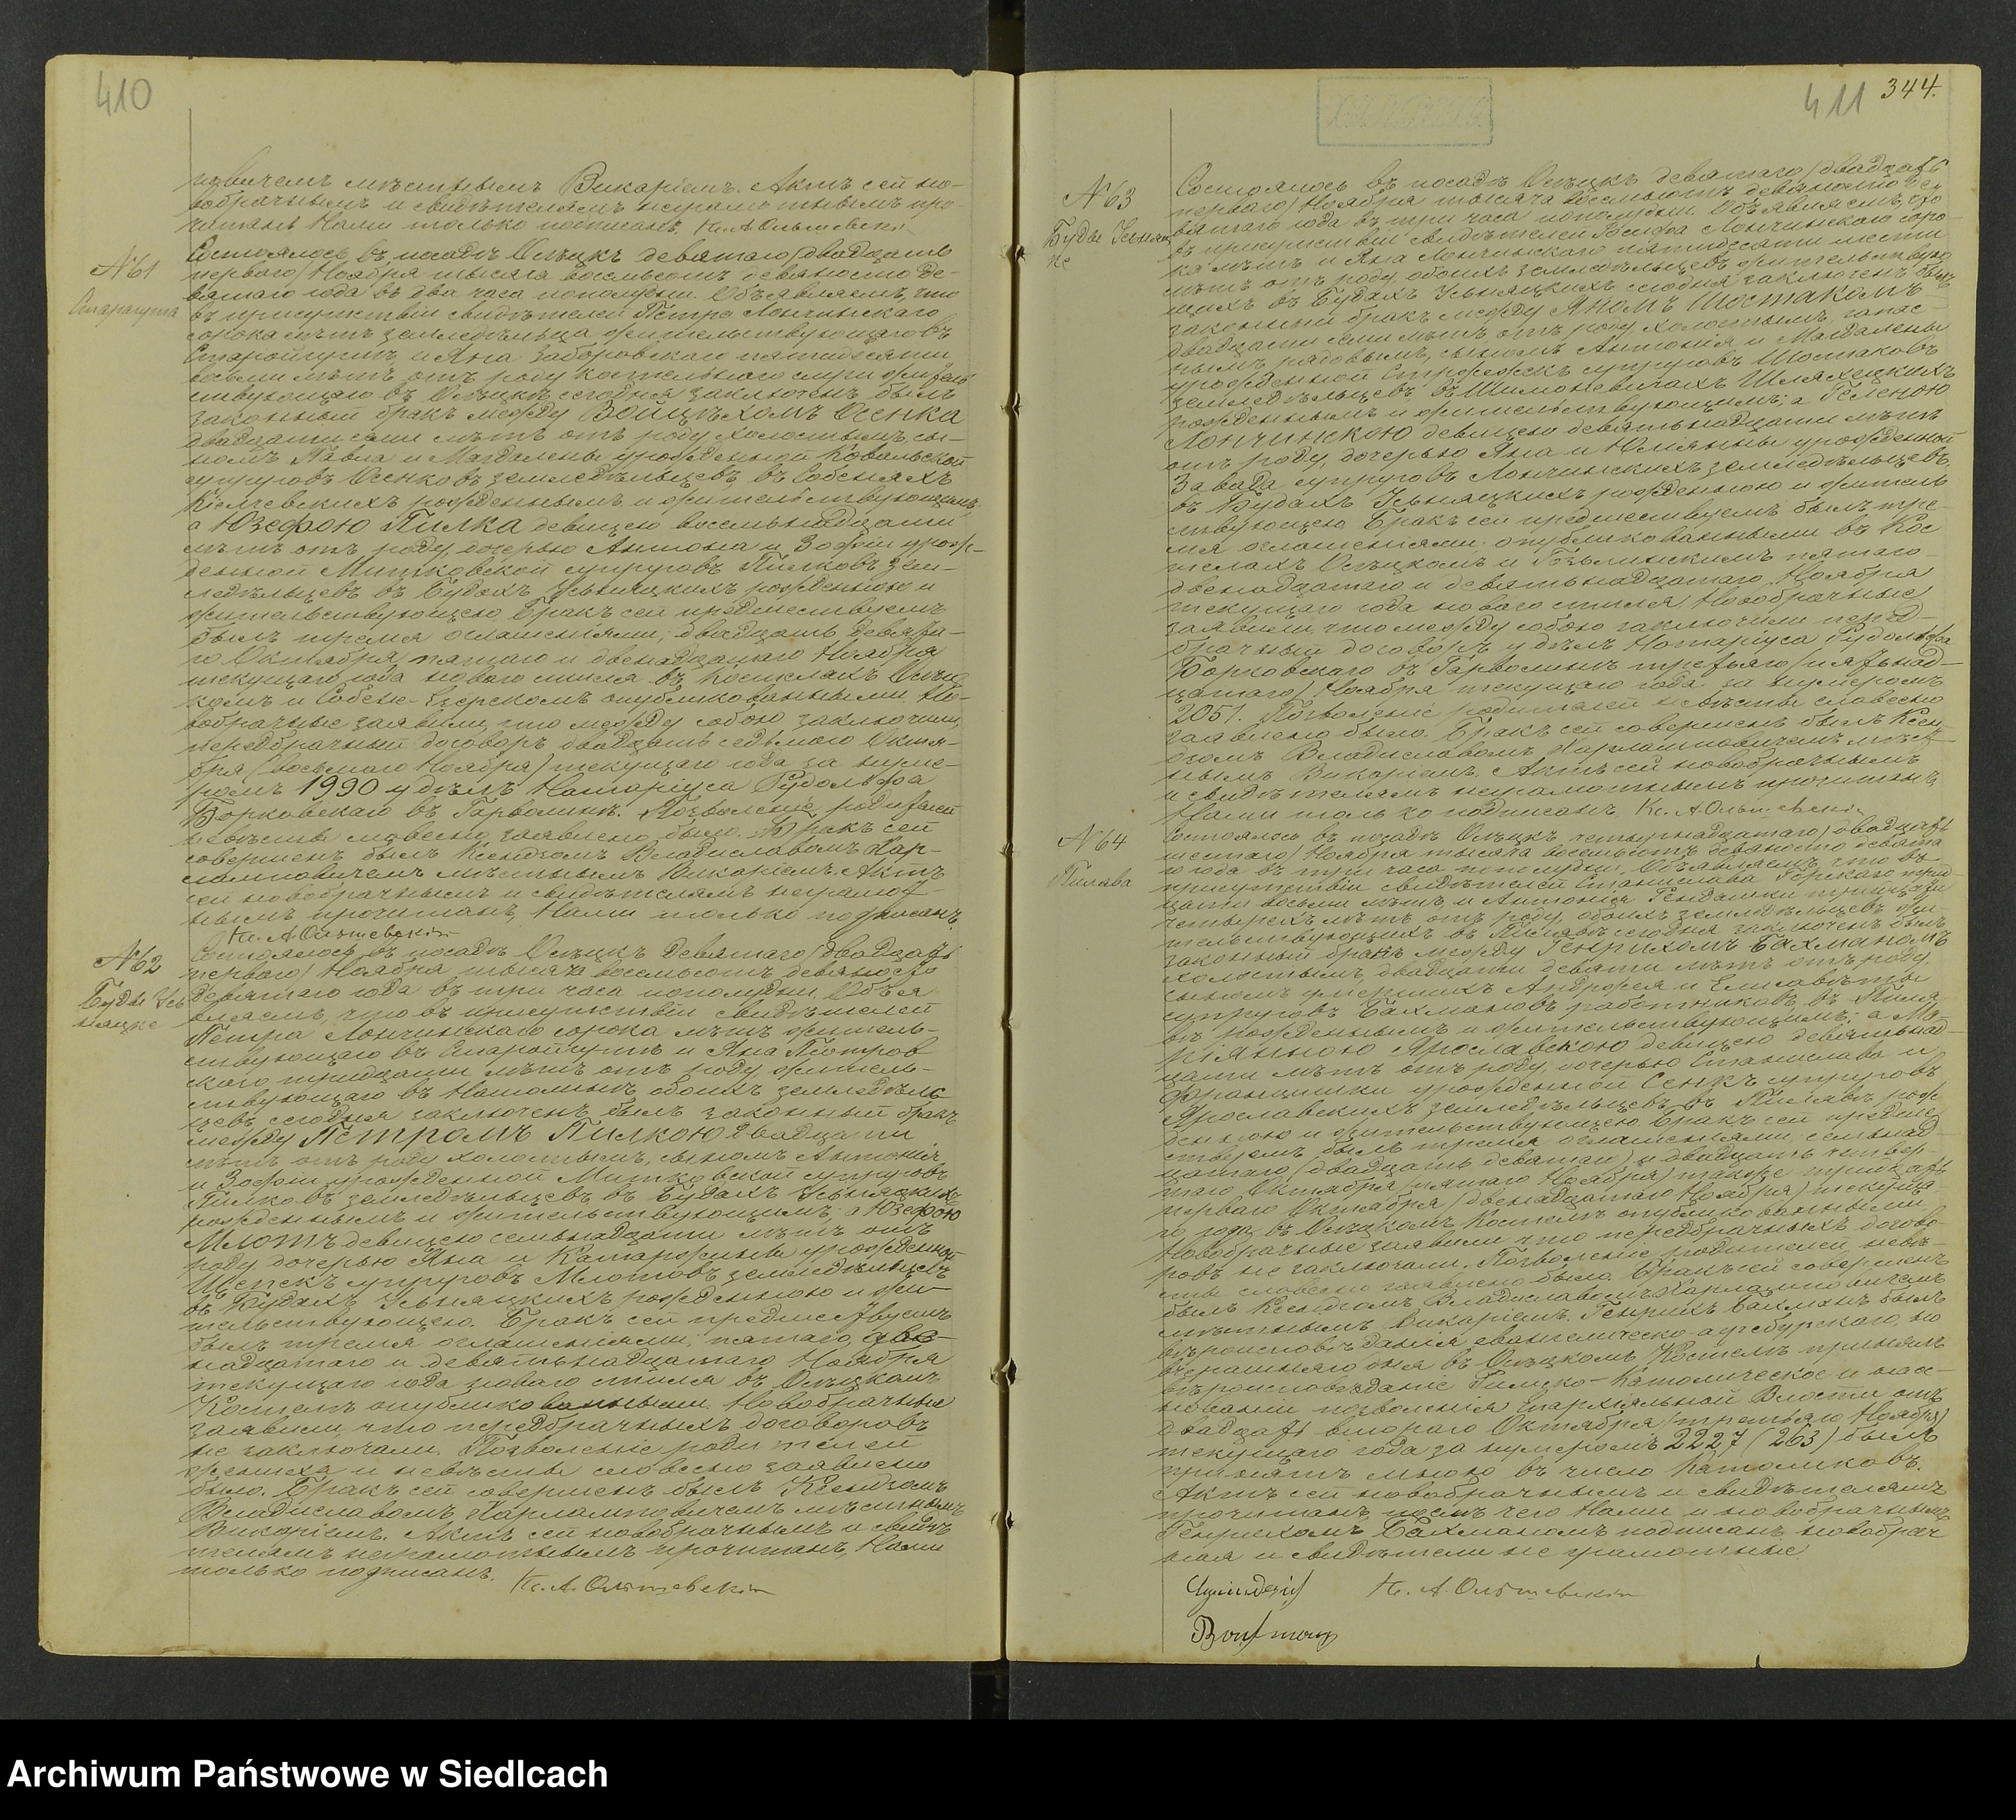 410
повичемъ мѣстнымъ Викаріемъ. Актъ сей но-
вобрачнымъ и свидѣтелямъ неграмотнымъ про-
читанъ Нами только подписанъ. Кс. А. Ольшевскій
№61
Старагута
Состоялось въ посадѣ Осѣцкѣ девятаго /двадцать
перваго/ Ноября тысяча восемьсотъ девяносто де-
вятаго года въ два часа пополудни. Объявляемъ, что
въ присутствіи свидѣтелей Петра Лончинскаго
сорока лѣтъ земледѣльца жительствующаго въ
Старойгутѣ и Яна Заборовскаго пятидесяти
восьми лѣтъ отъ роду костельнаго слуги житель
ствующаго въ Осѣцкѣ сегодня заключенъ былъ
законный бракъ между Войцѣхомъ Осенка
двадцати семи лѣтъ отъ роду холостымъ, сы-
номъ Павла и Магдалены урожденной Ковальской
супруговъ Осенковъ земледѣльцевъ, въ Собеняхъ
Кіелчевскихъ рожденнымъ и жительствующимъ,
а Юзефою Пилка девицею восемьнадцати
лѣтъ отъ роду, дочерью Антона и Зофіи урож-
денной Митковской супруговъ Пилковъ зем-
ледѣльцевъ въ Будахъ Усьняцкихъ рожденною и
жительствующею. Бракъ сей предшествуемъ
былъ тремя оглашеніями, двадцать девята-
го Октября, пятаго и двенадцатаго Ноября
текущаго года новаго стиля въ Костелахъ Осѣц
комъ и Собене-Езерскомъ опубликованными. Но-
вобрачные заявили, что между собою заключили,
передбрачный договоръ двадцать седьмого Октя-
бря (восьмого Ноября) текущаго года за нуме-
ромъ 1990 у дѣлъ Нотаріуса Рудольфа
Борковскаго въ Гарволинѣ. Позволеніе родителей
невѣсты словесно заявлено было. Бракъ сей
совершенъ былъ Ксендзомъ Владиславомъ Хар-
лампповичемъ мѣстнымъ Викаріемъ. Актъ
сей новобрачнымъ и свидѣтелямъ неграмот-
нымъ прочитанъ, Нами только подписанъ.
Кс. А. Ольшевскій
№62
Буды Усь
няцке
Состоялось въ посадѣ Осѣцкѣ девятаго /двадцать
перваго/ Ноября тысяча восемьсотъ девяносто
девятаго года въ три часа пополудни. Объя
вляемъ, что въ присутствіи свидѣтелей
Петра Лончинскаго сорока лѣтъ житель-
ствующаго въ Старойгутѣ и Яна Піотров
скаго тридцати лѣтъ отъ роду, житель-
ствующаго въ Натолинѣ обоихъ земледѣль
цевъ сегодня заключенъ былъ законный бракъ
между Петромъ Пилкою двадцати
лѣтъ отъ роду холостымъ, сыномъ Антонія
и Зофіи урожденной Митковской супруговъ
Пилковъ земледѣльцевъ въ Будахъ Усьняцкихъ
рожденнымъ и жительствующимъ, а Юзефою
Млотъ девицею семьнадцати лѣтъ отъ
роду, дочерью Яна и Катаржины урожденной
Щепекъ супруговъ Млотовъ земледѣльцевъ
въ Будахъ Усьняцкихъ рожденною и жи-
тельствующею. Бракъ сей предшествуемъ
былъ тремя оглашеніями, пятаго, две-
надцатаго и девятьнадцатаго Ноября
текущаго года новаго стиля въ Осѣцкомъ
Костелѣ опубликованными. Новобрачные
заявили, что передбрачныхъ договоровъ
не заключали. Позволеніе родителей
жениха и невѣсты словесно заявлено
было. Бракъ сей совершенъ былъ Ксендзомъ
Владиславомъ Харлампповичемъ мѣстнымъ
Викаріемъ. Актъ сей новобрачнымъ и свидѣ
телямъ неграмотнымъ прочитанъ, Нами
только подписанъ. Кс. А. Ольшевскій
411 344.
№63
Буды Усьняц
ке
Состоялось въ посадѣ Осѣцкѣ девятаго /двадцать
перваго/ Ноября тысяча восемьсотъ девяносто де
вятаго года въ три часа пополудни. Объявляемъ, что
въ присутствіи свидѣтелей Іосифа Лончинскаго соро
ка лѣтъ и Яна Лончинскаго пятидесяти шести
лѣтъ отъ роду, обоихъ земледѣльцевъ жительствую
щихъ въ Будахъ Усьняцкихъ сегодня заключенъ былъ
законный бракъ между Яномъ Шостакомъ
двадцати семи лѣтъ отъ роду холостымъ, запас-
нымъ рядовымъ, сыномъ Антонія и Магдалены
урожденной Строжекъ супруговъ Шостаковъ
земледѣльцевъ въ Шимоневичахъ Шляхецкихъ
рожденнымъ и жительствующимъ; а Геленою
Лончинскою девицею девятьнадцати лѣтъ
отъ роду, дочерью Яна и Юліянны урожденной
Завада супруговъ Лончинскихъ земледѣльцевъ,
въ Будахъ Усьняцкихъ рожденною и житель
ствующею. Бракъ сей предшествуемъ былъ тре-
мя оглашеніями опубликованными въ Кос
телахъ Осѣцкомъ и Гозьлинскимъ пятаго
двенадцатаго и девятьнадцатаго Ноября
текущаго года новаго стиля. Новобрачные
заявили, что между собою заключили перед-
брачный договоръ у дѣлъ Нотаріуса Рудольфа
Борковскаго въ Гарволинѣ третьяго /пятьнад-
цатаго/ Ноября текущаго года за нумеромъ
2051. Позволеніе родителей невѣсты словесно
заявлено было. Бракъ сей совершенъ былъ Ксен-
дзомъ Владиславомъ Харлампповичемъ мѣст-
нымъ Викаріемъ. Актъ сей новобрачнымъ
и свидѣтелямъ неграмотнымъ прочитанъ,
Нами только подписанъ. Кс. А. Ольшевскій
№64
Пилава
Состоялось въ посадѣ Осѣцкѣ четырнадцатаго /двадцать
шестаго/ Ноября тысяча восемьсотъ девяносто девята
го года въ три часа пополудни. Объявляемъ, что въ
присутствіи свидѣтелей Станислава Герскаго трид
цати восьми лѣтъ и Антонія Гендашки тридцати
четырехъ лѣтъ отъ роду, обоихъ земледѣльцевъ жи-
тельствующихъ въ Пилявѣ сегодня заключенъ былъ
законный бракъ между Генрихомъ Бахманомъ
холостымъ двадцати девяти лѣтъ отъ роду,
сыномъ умершихъ Андржея и Елисавѣты
супруговъ Бахмановъ работниковъ, въ Пиля
вѣ рожденнымъ и жительствующимъ; а Ма-
ріянною Ярославскою девицею девятьнад-
цати лѣтъ отъ роду, дочерью Станислава и
Францишки урожденной Сенкъ супруговъ
Ярославскихъ земледѣльцевъ въ Пилявѣ рож
денною и жительствующею. Бракъ сей предше-
ствуемъ былъ тремя оглашеніями, семьнад-
цатаго /двадцать девятаго/ и двадцать четвер-
таго Октября /пятаго Ноября/ также тридцать
перваго Октября /двенадцатаго Ноября/ текуща-
го года въ Осѣцкомъ Костелѣ опубликованными
Новобрачные заявили что передбрачныхъ догово-
ровъ не заключали. Позволеніе родителей невѣ-
сты словесно заявлено было. Бракъ сей совершенъ
былъ Ксендзомъ Владиславомъ Харлампповичемъ
мѣстнымъ Викаріемъ. Генрихъ Бахманъ былъ
вѣроисповѣданія евангелическо-аугсбургскаго, но
вчерашняго дня въ Осѣцкомъ Костелѣ принялъ
вѣроисповѣданіе Римско-Католическое и на ос-
нованіи позволенія Епархіальной Власти отъ
двадцать втораго Октября /третьяго Ноября/
текущаго года за нумеромъ 2227 (263) былъ
принятъ мною въ число Католиковъ.
Актъ сей новобрачнымъ и свидѣтелямъ
прочитанъ, послѣ чего Нами и новобрачнымъ
Генрихомъ Бахманомъ подписанъ, новобрач
ная и свидѣтели не грамотные.
Кс. А. Ольшевскій
Archiwum Państwowe w Siedlcach